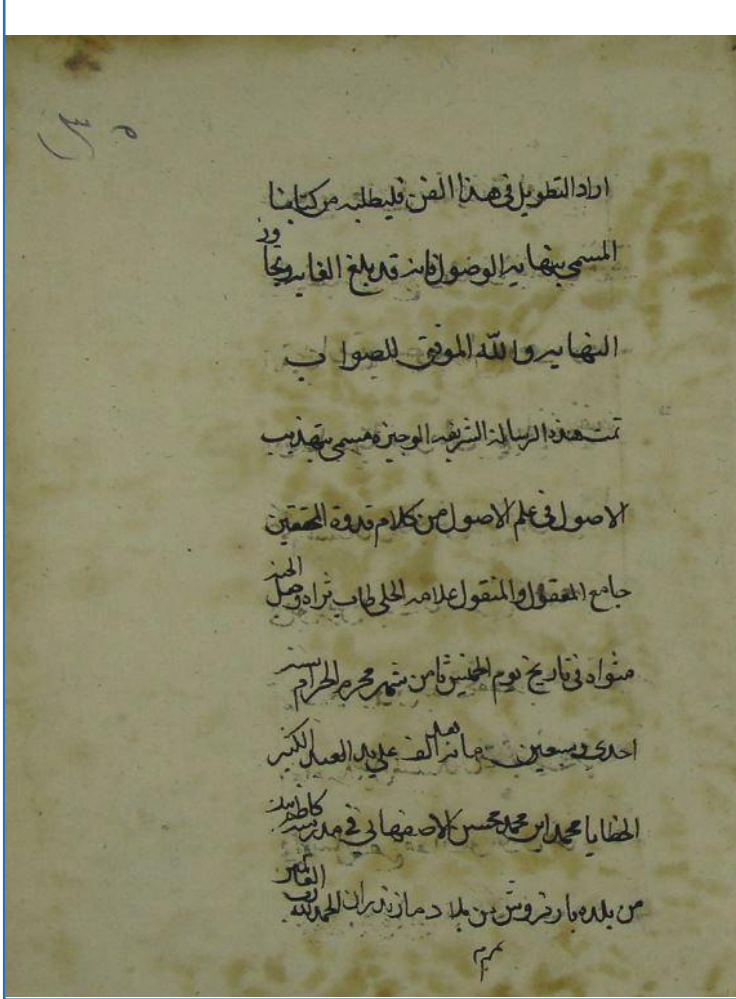 اراد التطويل فى هذا الفن فليطلبه من كتابنا
المسمى بنهايه الوصول فانه قد بلغ الغايه وتجاوز
النهايه والله الموفق للصواب
تمت هذه الرسالة الشريفه الوجيزه مسمى بتهذيب
الاصول فى علم الاصول من كلام قدوة المحققين
جامع المعقول والمنقول علامه الحلى طاب ثراه وجعل الجنه
مثواه فى تاريخ يوم الخميس ثامن شهر محرم الحرام سنه
احدى وسبعين مائه بعد الف على يد العبد الكثير
الخطايا محمد ابن محمد محسن الاصفهانى فى مدرسه
من بلده بارفروش من بلاد مازندران الحمد لله رب العالمين